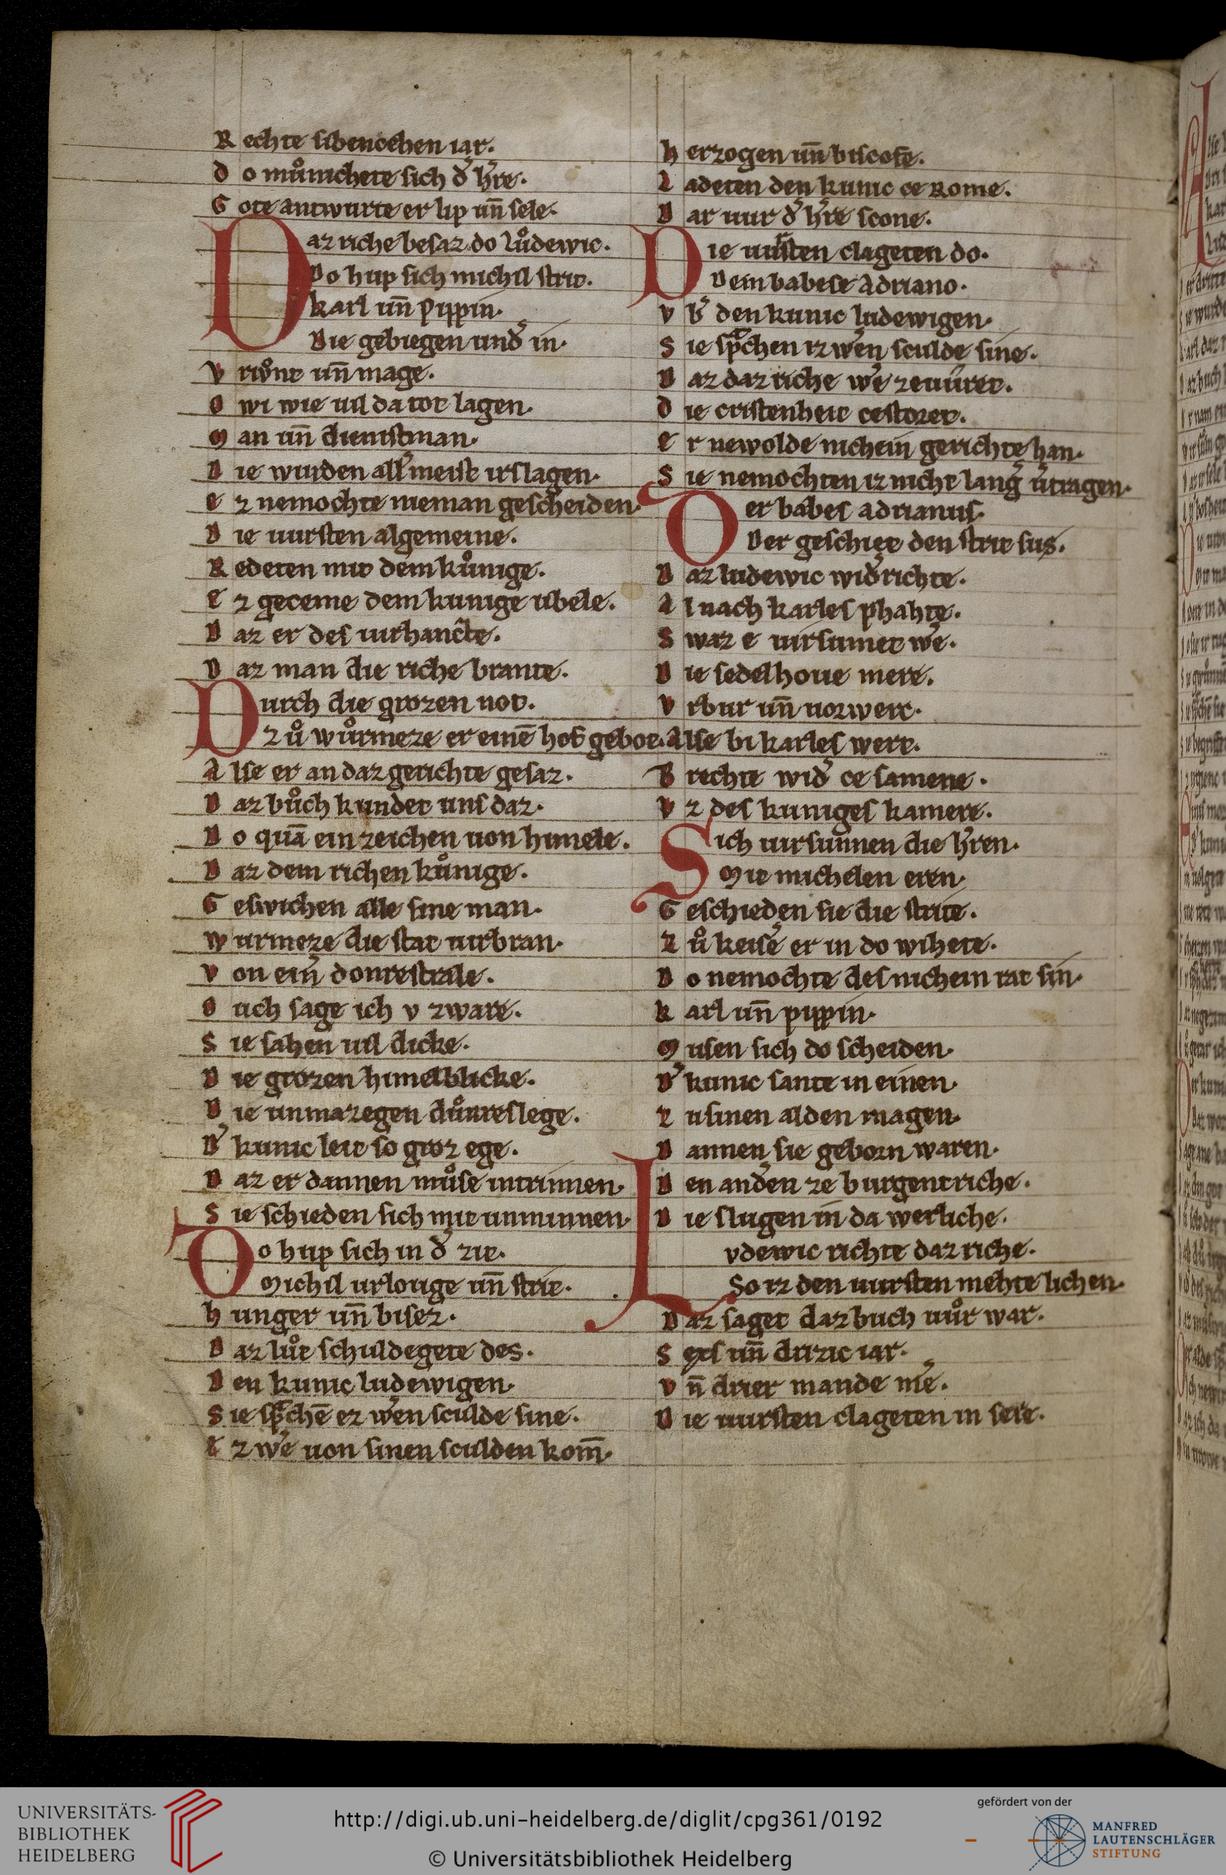 Rechte sibencehen iar.
do můnichete sich d͛ h͛re.
Gote antwurte er lip un̄ sele.
Daz riche besaz do lůdewic.
Do hup sich michil strit.
karl un̄ Pippin.
Die gebiegen und͛ in.
vriv̊nt un̄ mage.
Owi wie uil da tot lagen.
Man un̄ dienistman.
Die wurden all͛meist irslagen.
Ez nemochte nieman gescheiden.
Die uursten algemeine.
Redeten mit dem ku̇nige.
Ez geceme dem kunige ubele.
Daz er des uurhancte.
Daz man die riche brante.
Durch die grozen not.
Zů wůrmeze er einē hof gebot.
Alse er an daz gerichte gesaz.
Daz bůch kundet uns daz.
Do quā ein zeichen uon himele.
Daz dem richen kůnige.
Geswichen alle sine man.
Wurmeze die stat uirbran.
Von ein͛ donrestrale.
Ouch sage ich v zware.
Sie sahen uil dicke.
Die grozen himelblicke.
Die unmazegen důnreslege.
D͛ kunic leit so groz ege.
Daz er dannen můse intrinnen.
Sie schieden sich mit unminnen.
Do hup sich in d͛ zit.
Michil urlouge un̄ strit.
Hunger un̄ bisez.
Daz lůt schuldegete des.
Den kunic ludewigen.
Sie sp͛chē ez we͛n sculde sine.
Ez we͛ uon sinen sculden kom̄.
herzogen un̄ biscofe.
Ladeten den kunic ce Rome.
Dar uur d͛ h͛re scone.
Die uursten clageten do.
Dem babese Adriano.
vb͛ den kunic ludewigen.
Sie sp͛chen iz we͛n sculde sine.
Daz daz riche we͛ zeuûret.
die cristenheit cestoret.
er newolde nichein gerichte han.
Sie nemochten iz nicht lang͛ u͛tragen.
Der babes adrianus
Der geschiet den strit sus.
Daz ludewic wid͛ richte.
Al nach karles phahte.
Swaz e uirsumet we͛.
Die sedelhoue mere.
Vrbur un̄ uorwerc.
Alse bi karles wert.
Brechte wid͛ ce samene.
Vz des kuniges kamere.
Sich uirsunnen die h͛ren.
Mit michelen eren
Geschieden sie die strite.
Zů keise͛ er in do wihete.
Do nemochte des nichein rat sin.
karl un̄ pippin.
Musen sich do scheiden.
D͛ kunic sante in einen
zu sinen alden magen.
Dannen sie geborn waren.
Den and͛en ze burgentriche.
Die slugen in da werliche.
Ludewic richte daz riche.
So iz den uursten mehte lichen.
Daz saget daz buch uůr war.
Sexs un̄ drizic iar.
vn̄ drier mande me͛.
Die uursten clageten in sere.
UNIVERSITÄTS-
BIBLIOTHEK
HEIDELBERG
http://digi.ub.uni-heidelberg.de/diglit/cpg361/0192
© Universitätsbibliothek Heidelberg
gefördert von der
MANFRED
LAUTENSCHLÄGER
STIFTUNG